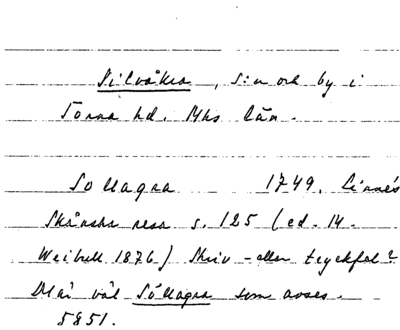 Silvåkra, s:n och by i
Torna hd. Mhs län.
Sollagra 1749. Linnés
Skånska resa s. 125 (ed. M.
Weibull 1876) Skriv- eller tryckfel?
Det är väl Söllagra som avses.
5851.